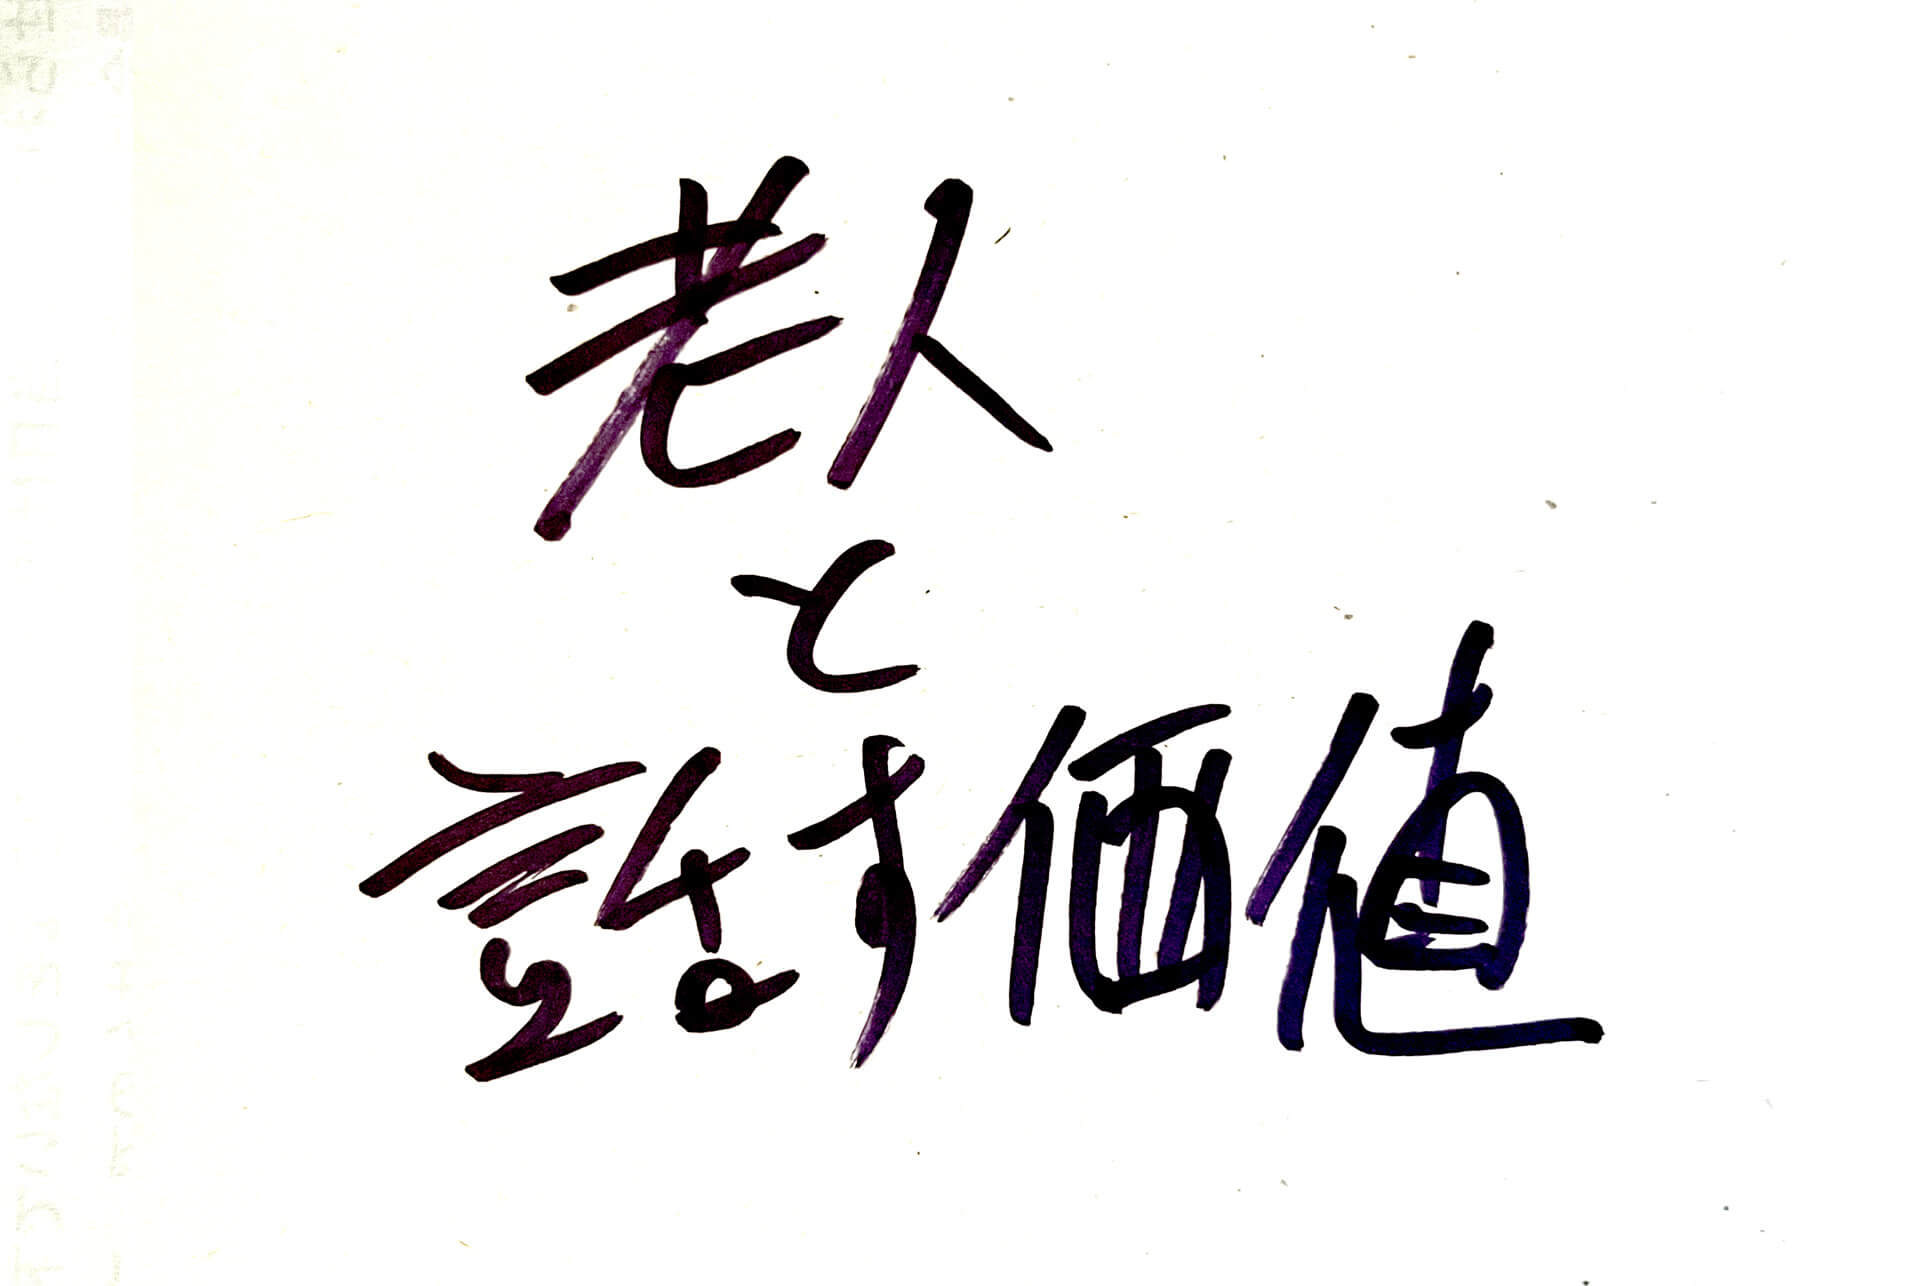 老人
と
話す価値